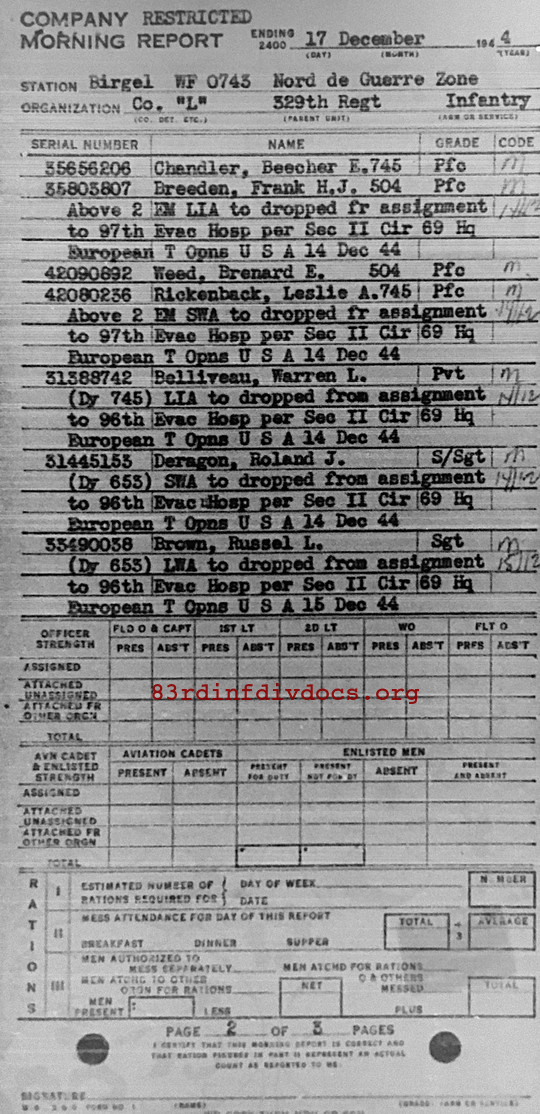 COMPANY RESTRICTED
MORNING REPORT ENDING 2400 17 December 1944
(DAY) (MONTH) (YEAR)
STATION Birgel WF 0743 Nord de Guerre Zone
ORGANIZATION Co. "L" 329th Regt Infantry
(CO. DET. ETC.) (PARENT UNIT) (ARM OR SERVICE)
SERIAL NUMBER NAME GRADE CODE
35656206 Chandler, Beecher E.745 Pfc m
35803807 Breeden, Frank H.J. 504 Pfc m
Above 2 EM LIA to dropped fr assignment 14/12
to 97th Evac Hosp per Sec II Cir 69 Hq
European T Opns U S A 14 Dec 44
42090892 Weed, Brenard E. 504 Pfc m
42080236 Rickenback, Leslie A.745 Pfc m
Above 2 EM SWA to dropped fr assignment 14/12
to 97th Evac Hosp per Sec II Cir 69 Hq
European T Opns U S A 14 Dec 44
31388742 Belliveau, Warren L. Pvt m
(Dy 745) LIA to dropped from assignment 14/12
to 96th Evac Hosp per Sec II Cir 69 Hq
European T Opns U S A 14 Dec 44
31445153 Deragon, Roland J. S/Sgt m
(Dy 653) SWA to dropped from assignment 14/12
to 96th Evac Hosp per Sec II Cir 69 Hq
European T Opns U S A 14 Dec 44
33490038 Brown, Russel L. Sgt m
(Dy 653) LWA to dropped from assignment 15/12
to 96th Evac Hosp per Sec II Cir 69 Hq
European T Opns U S A 15 Dec 44
OFFICER STRENGTH FLD O & CAPT 1ST LT 2D LT WO FLT O
PRES ABS'T PRES ABS'T PRES ABS'T PRES ABS'T PRES ABS'T
ASSIGNED
ATTACHED UNASSIGNED
83rdinfdivdocs.org
ATTACHED FR OTHER ORGN
TOTAL
AVN CADET & ENLISTED STRENGTH AVIATION CADETS ENLISTED MEN
PRESENT ABSENT PRESENT FOR DUTY PRESENT NOT FOR DY ABSENT PRESENT AND ABSENT
ASSIGNED
ATTACHED UNASSIGNED
ATTACHED FR OTHER ORGN
TOTAL
RATIONS
I ESTIMATED NUMBER OF RATIONS REQUIRED FOR { DAY OF WEEK DATE NUMBER
II MESS ATTENDANCE FOR DAY OF THIS REPORT TOTAL ÷ 3 AVERAGE
BREAKFAST DINNER SUPPER
III MEN AUTHORIZED TO MESS SEPARATELY MEN ATCHD FOR RATIONS
MEN ATCHD TO OTHER ORGN FOR RATIONS NET & OTHERS MESSED TOTAL
MEN PRESENT LESS PLUS
PAGE 2 OF 3 PAGES
I CERTIFY THAT THIS MORNING REPORT IS CORRECT AND
THAT RATION FIGURES IN PART III REPRESENT AN ACTUAL
COUNT AS REPORTED TO ME:
SIGNATURE
FORM NO. 1 (NAME)